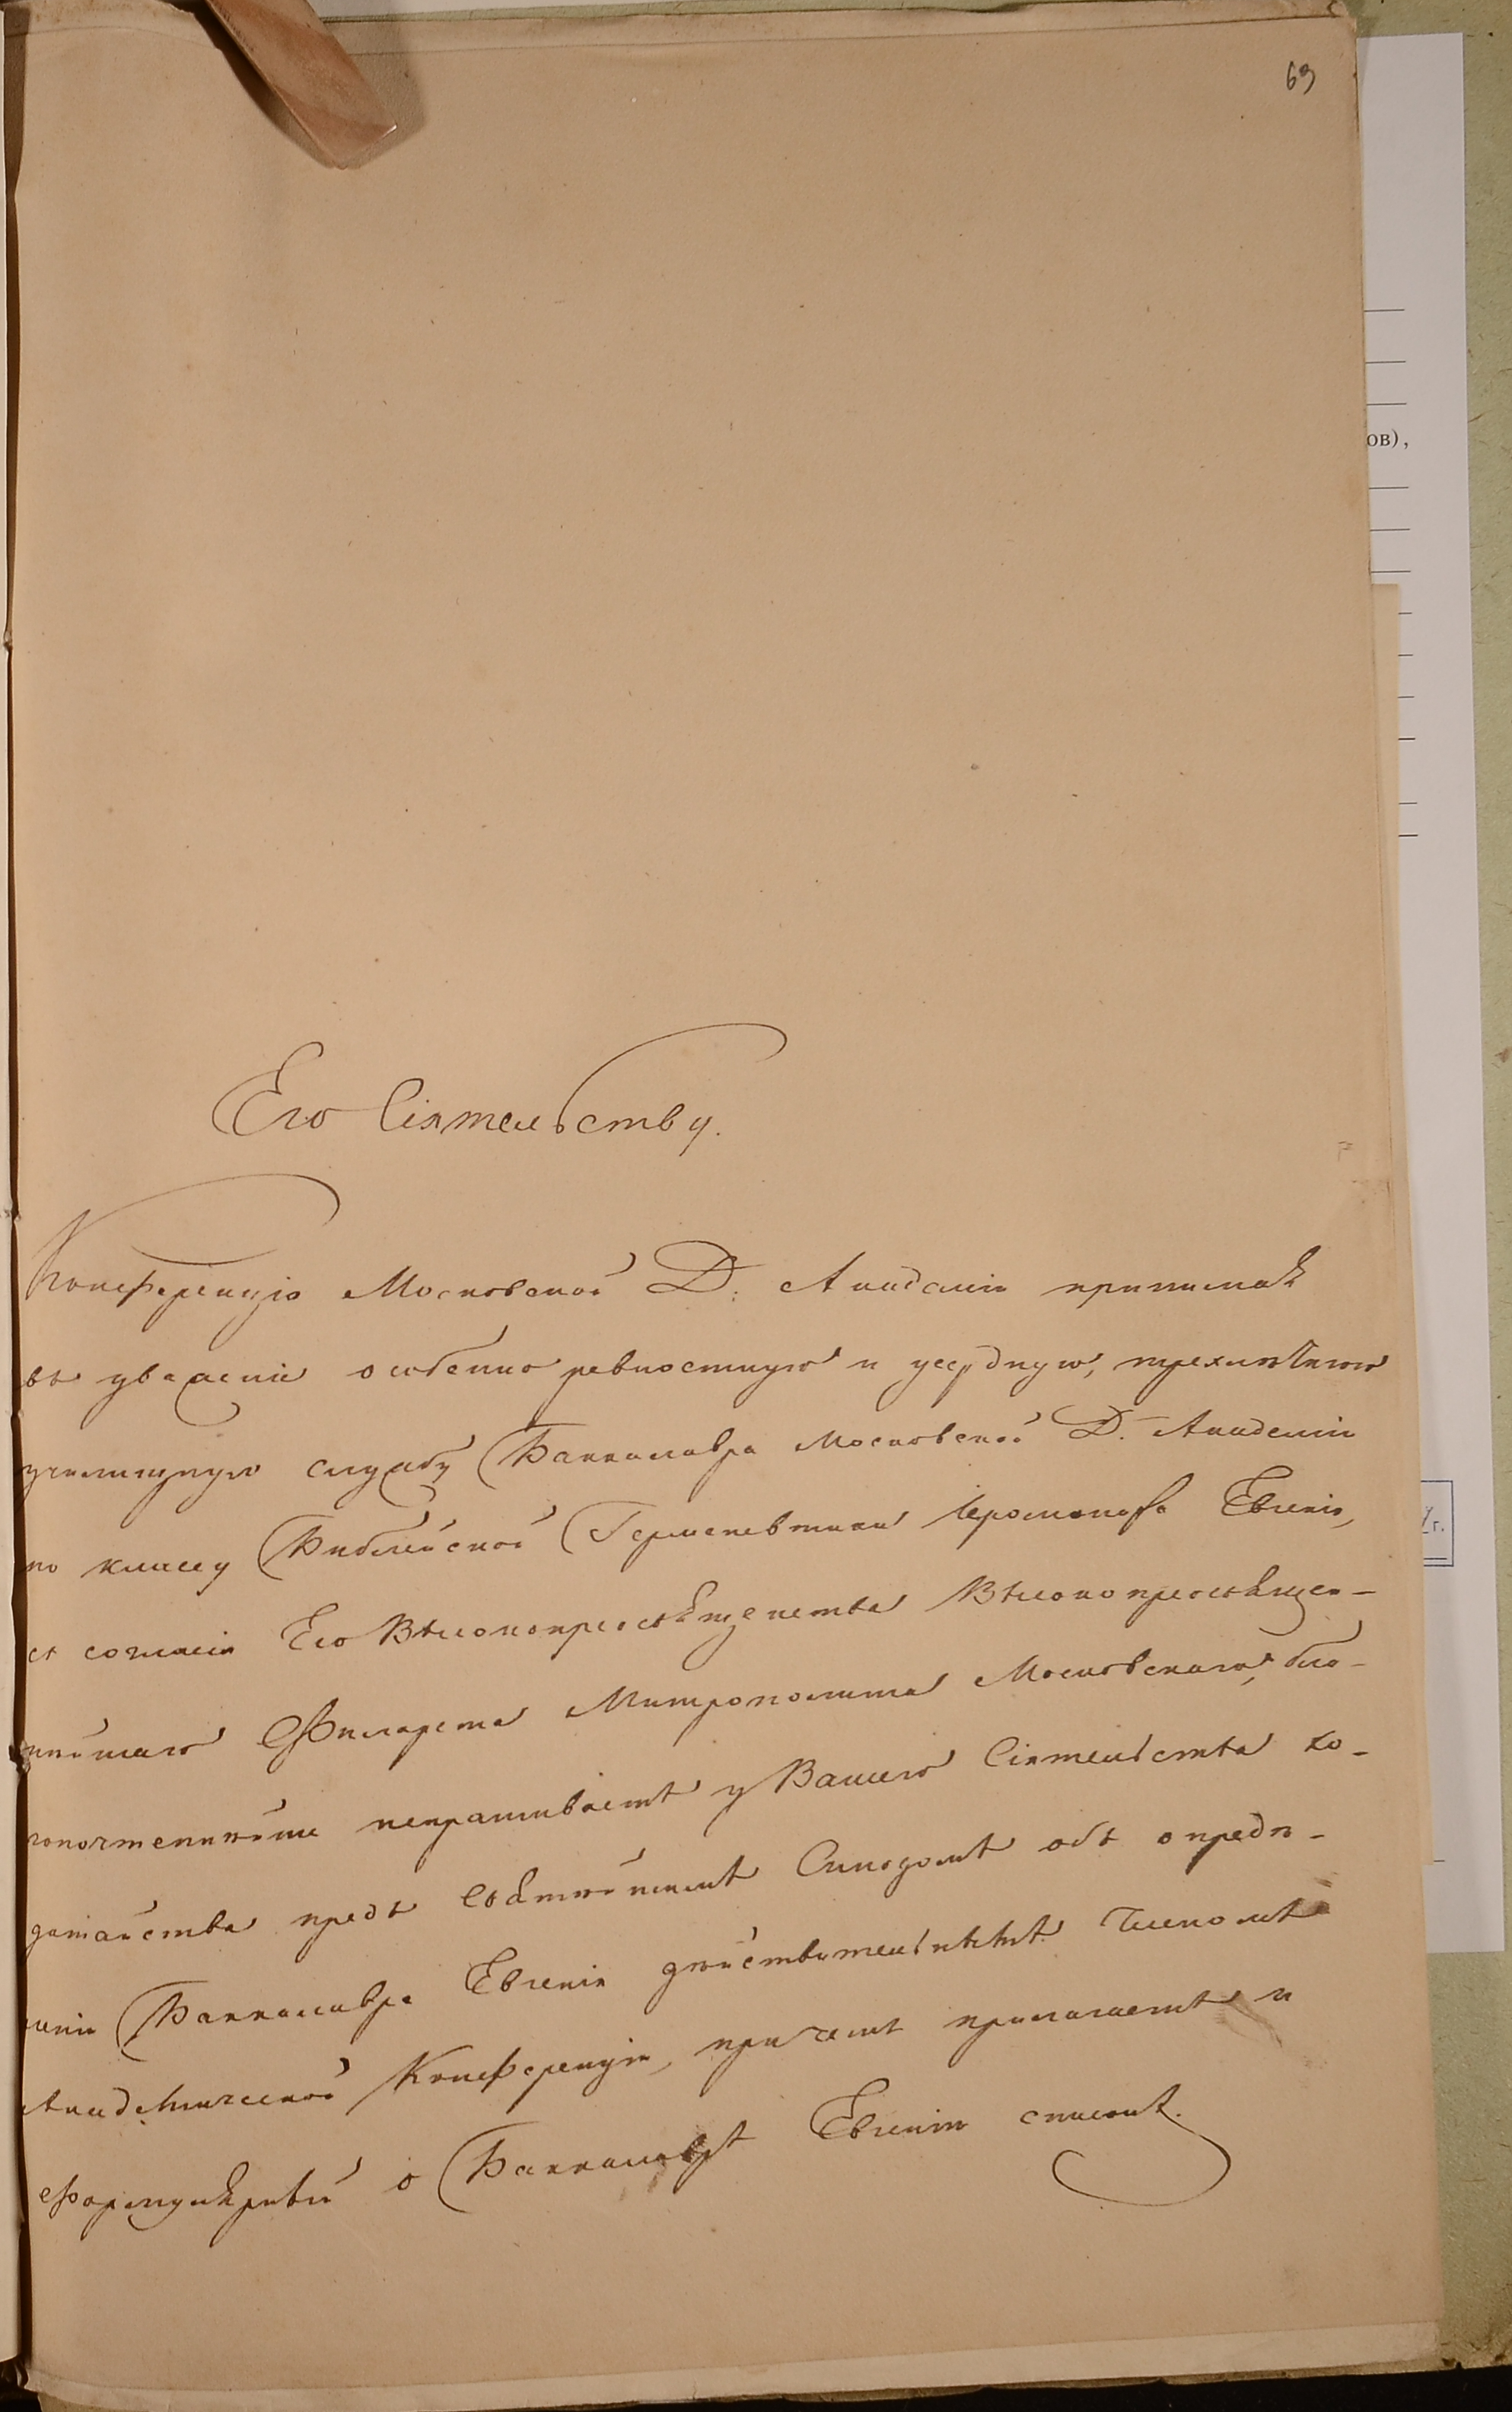 69
Его Сіятельству.
Конференція Московской Д. Академіи принимая
въ уваженіе особенно ревностную и усердную, трехлѣтнюю
училищную службу Баккалавра Московской Д. Академіи
по классу Библейской Герменевтики Іеромонаха Евгенія,
съ согласія Его Высокопреосвященства Высокопреосвящен-
нѣйшаго Филарета Митрополита Московскаго, бла-
гопочтеннѣйше испрашиваетъ у Вашего Сіятельства хо-
датайства предъ Святѣйшимъ Синодомъ объ опредѣ-
леніи Баккалавра Евгенія дѣйствительнымъ Членомъ
Академической Конференціи, причемъ прилагаетъ и
формулярный о Баккалаврѣ Евгеніи списокъ.
ов),
г.